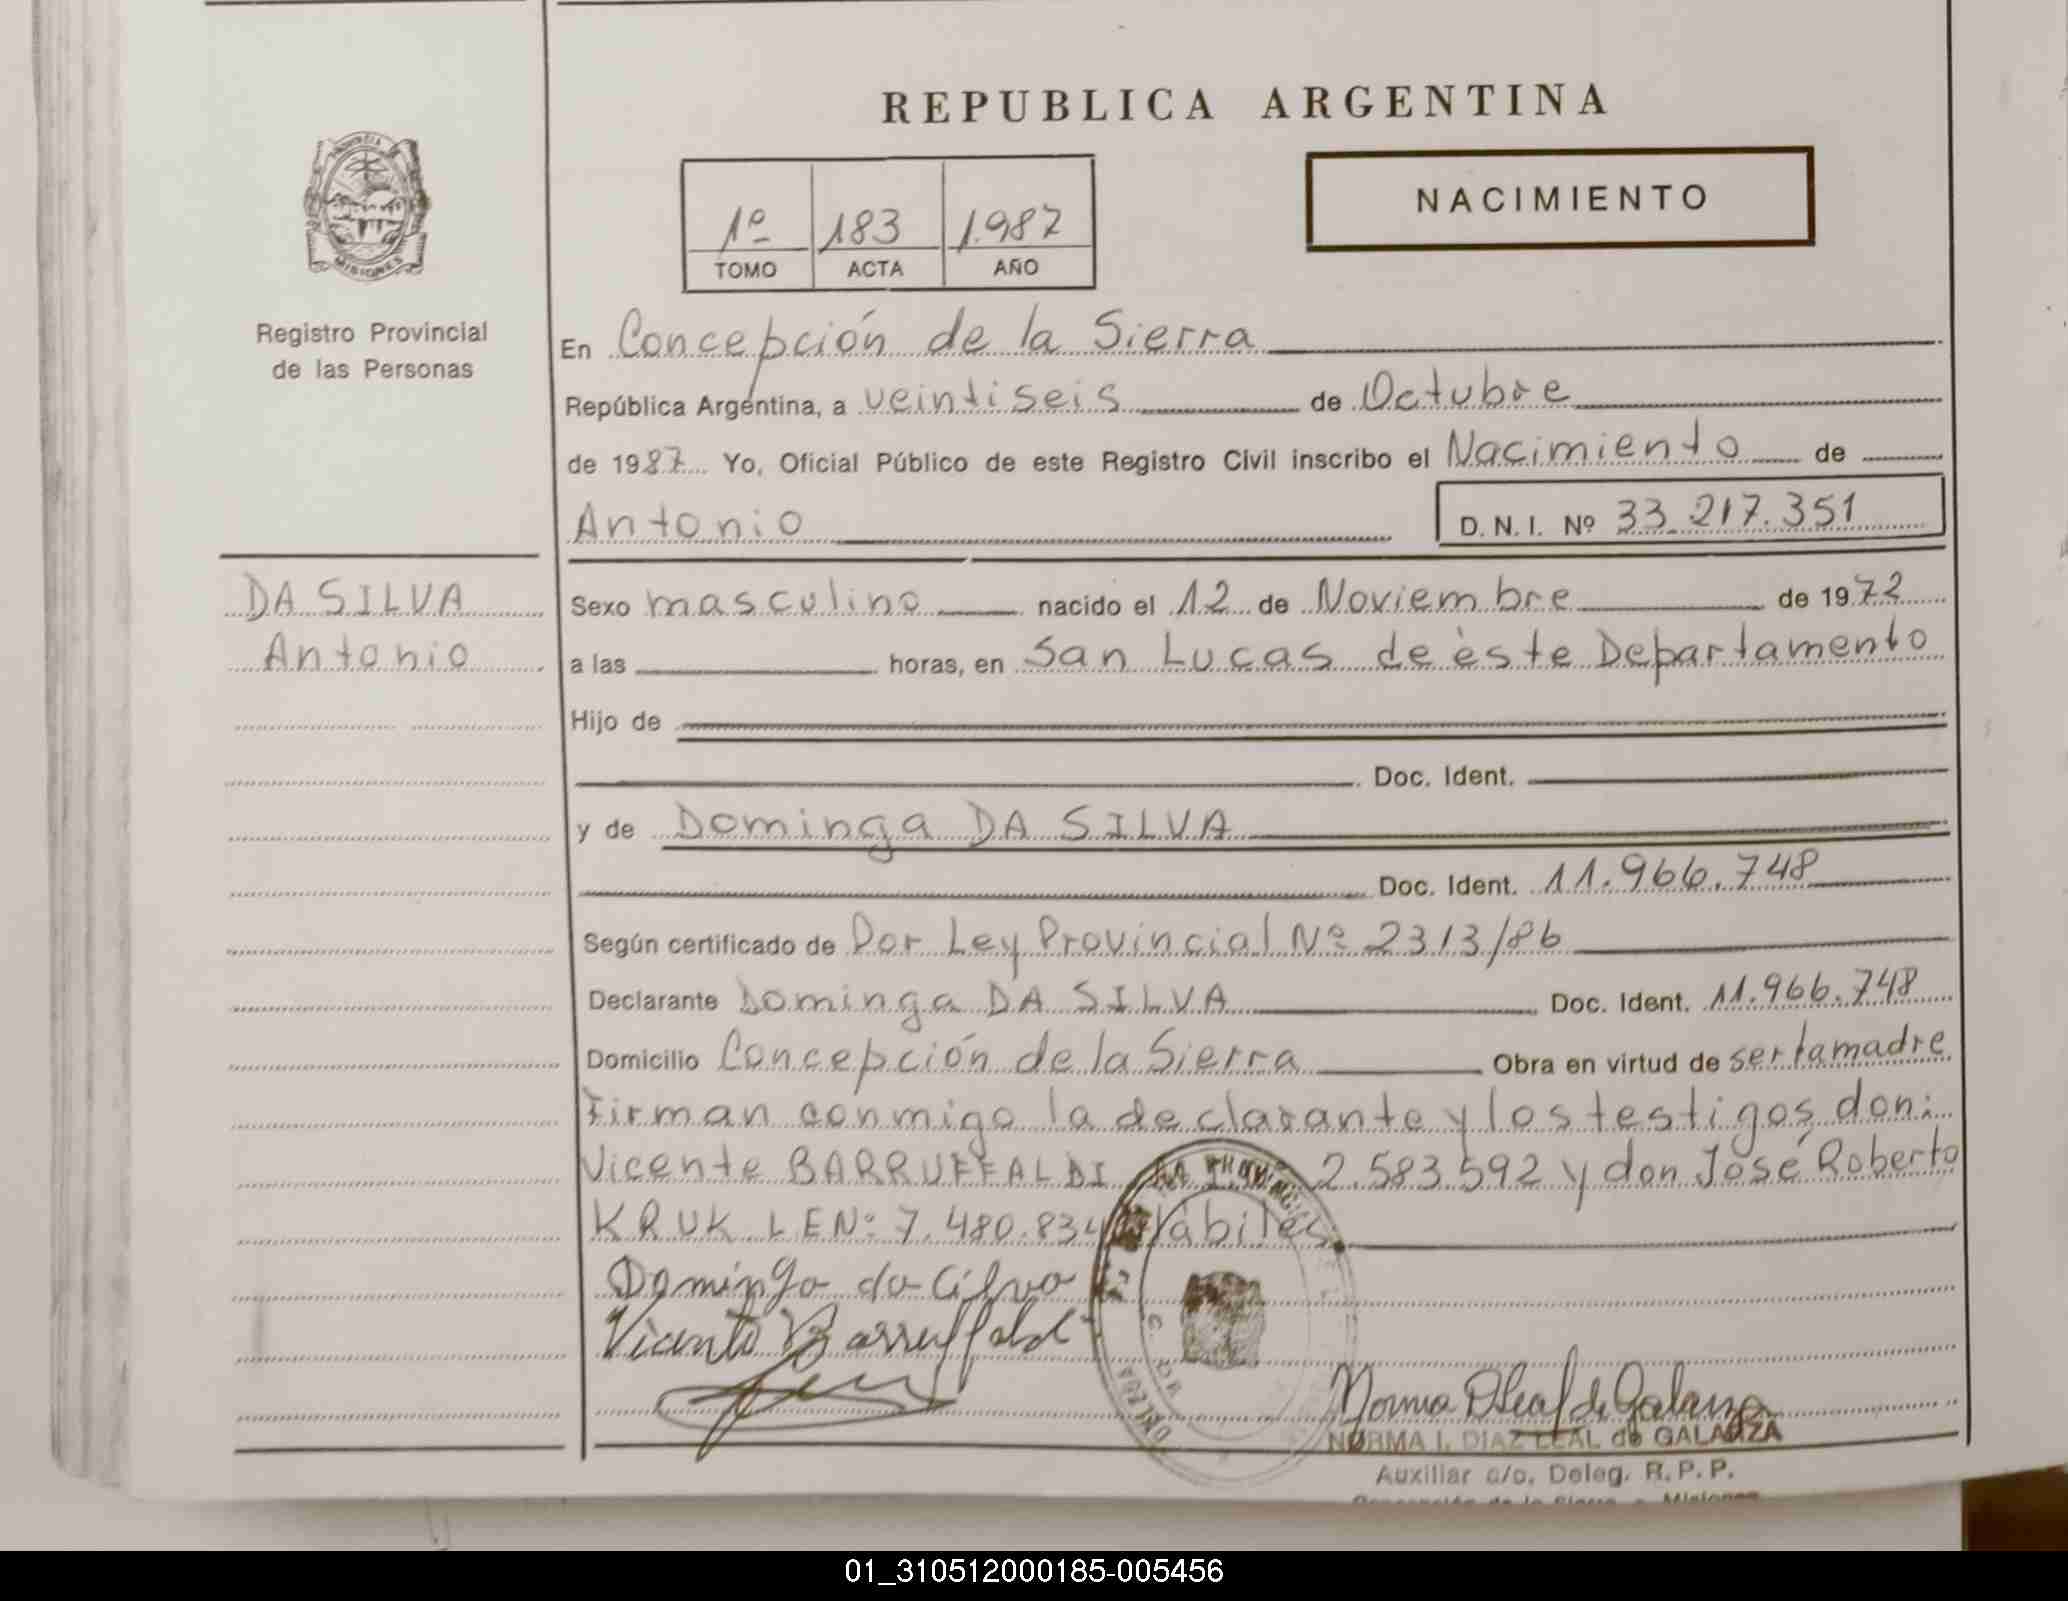 REPUBLICA ARGENTINA
PROVINCIA DE
MISIONES
Registro Provincial
de las Personas
1º 183 1.987
TOMO ACTA AÑO
NACIMIENTO
En Concepción de la Sierra
República Argentina, a veintiseis de Octubre
de 1987 Yo, Oficial Público de este Registro Civil inscribo el Nacimiento de
Antonio D. N. I. Nº 33.217.351
DA SILVA
Antonio
Sexo masculino nacido el 12 de Noviembre de 1972
a las horas, en San Lucas de èste Departamento
Hijo de
Doc. Ident.
y de Dominga DA SILVA
Doc. Ident. 11.966.748
Según certificado de Por Ley Provincial Nº 2313/86
Declarante Dominga DA SILVA Doc. Ident. 11.966.748
Domicilio Concepción de la Sierra Obra en virtud de ser la madre
Firman conmigo la declarante y los testigos, don:
Vicente BARRUFFALDI 2.583.592 y don José Roberto
KRUK LE Nº 7.480.834 Hábiles
Dominga da Cilva
Vicente Barruffaldi
Norma D Leal de Galarza
NORMA I. DIAZ LEAL de GALARZA
Auxiliar a/c. Deleg. R. P. P.
Concepción de la Sierra - Misiones
01_310512000185-005456